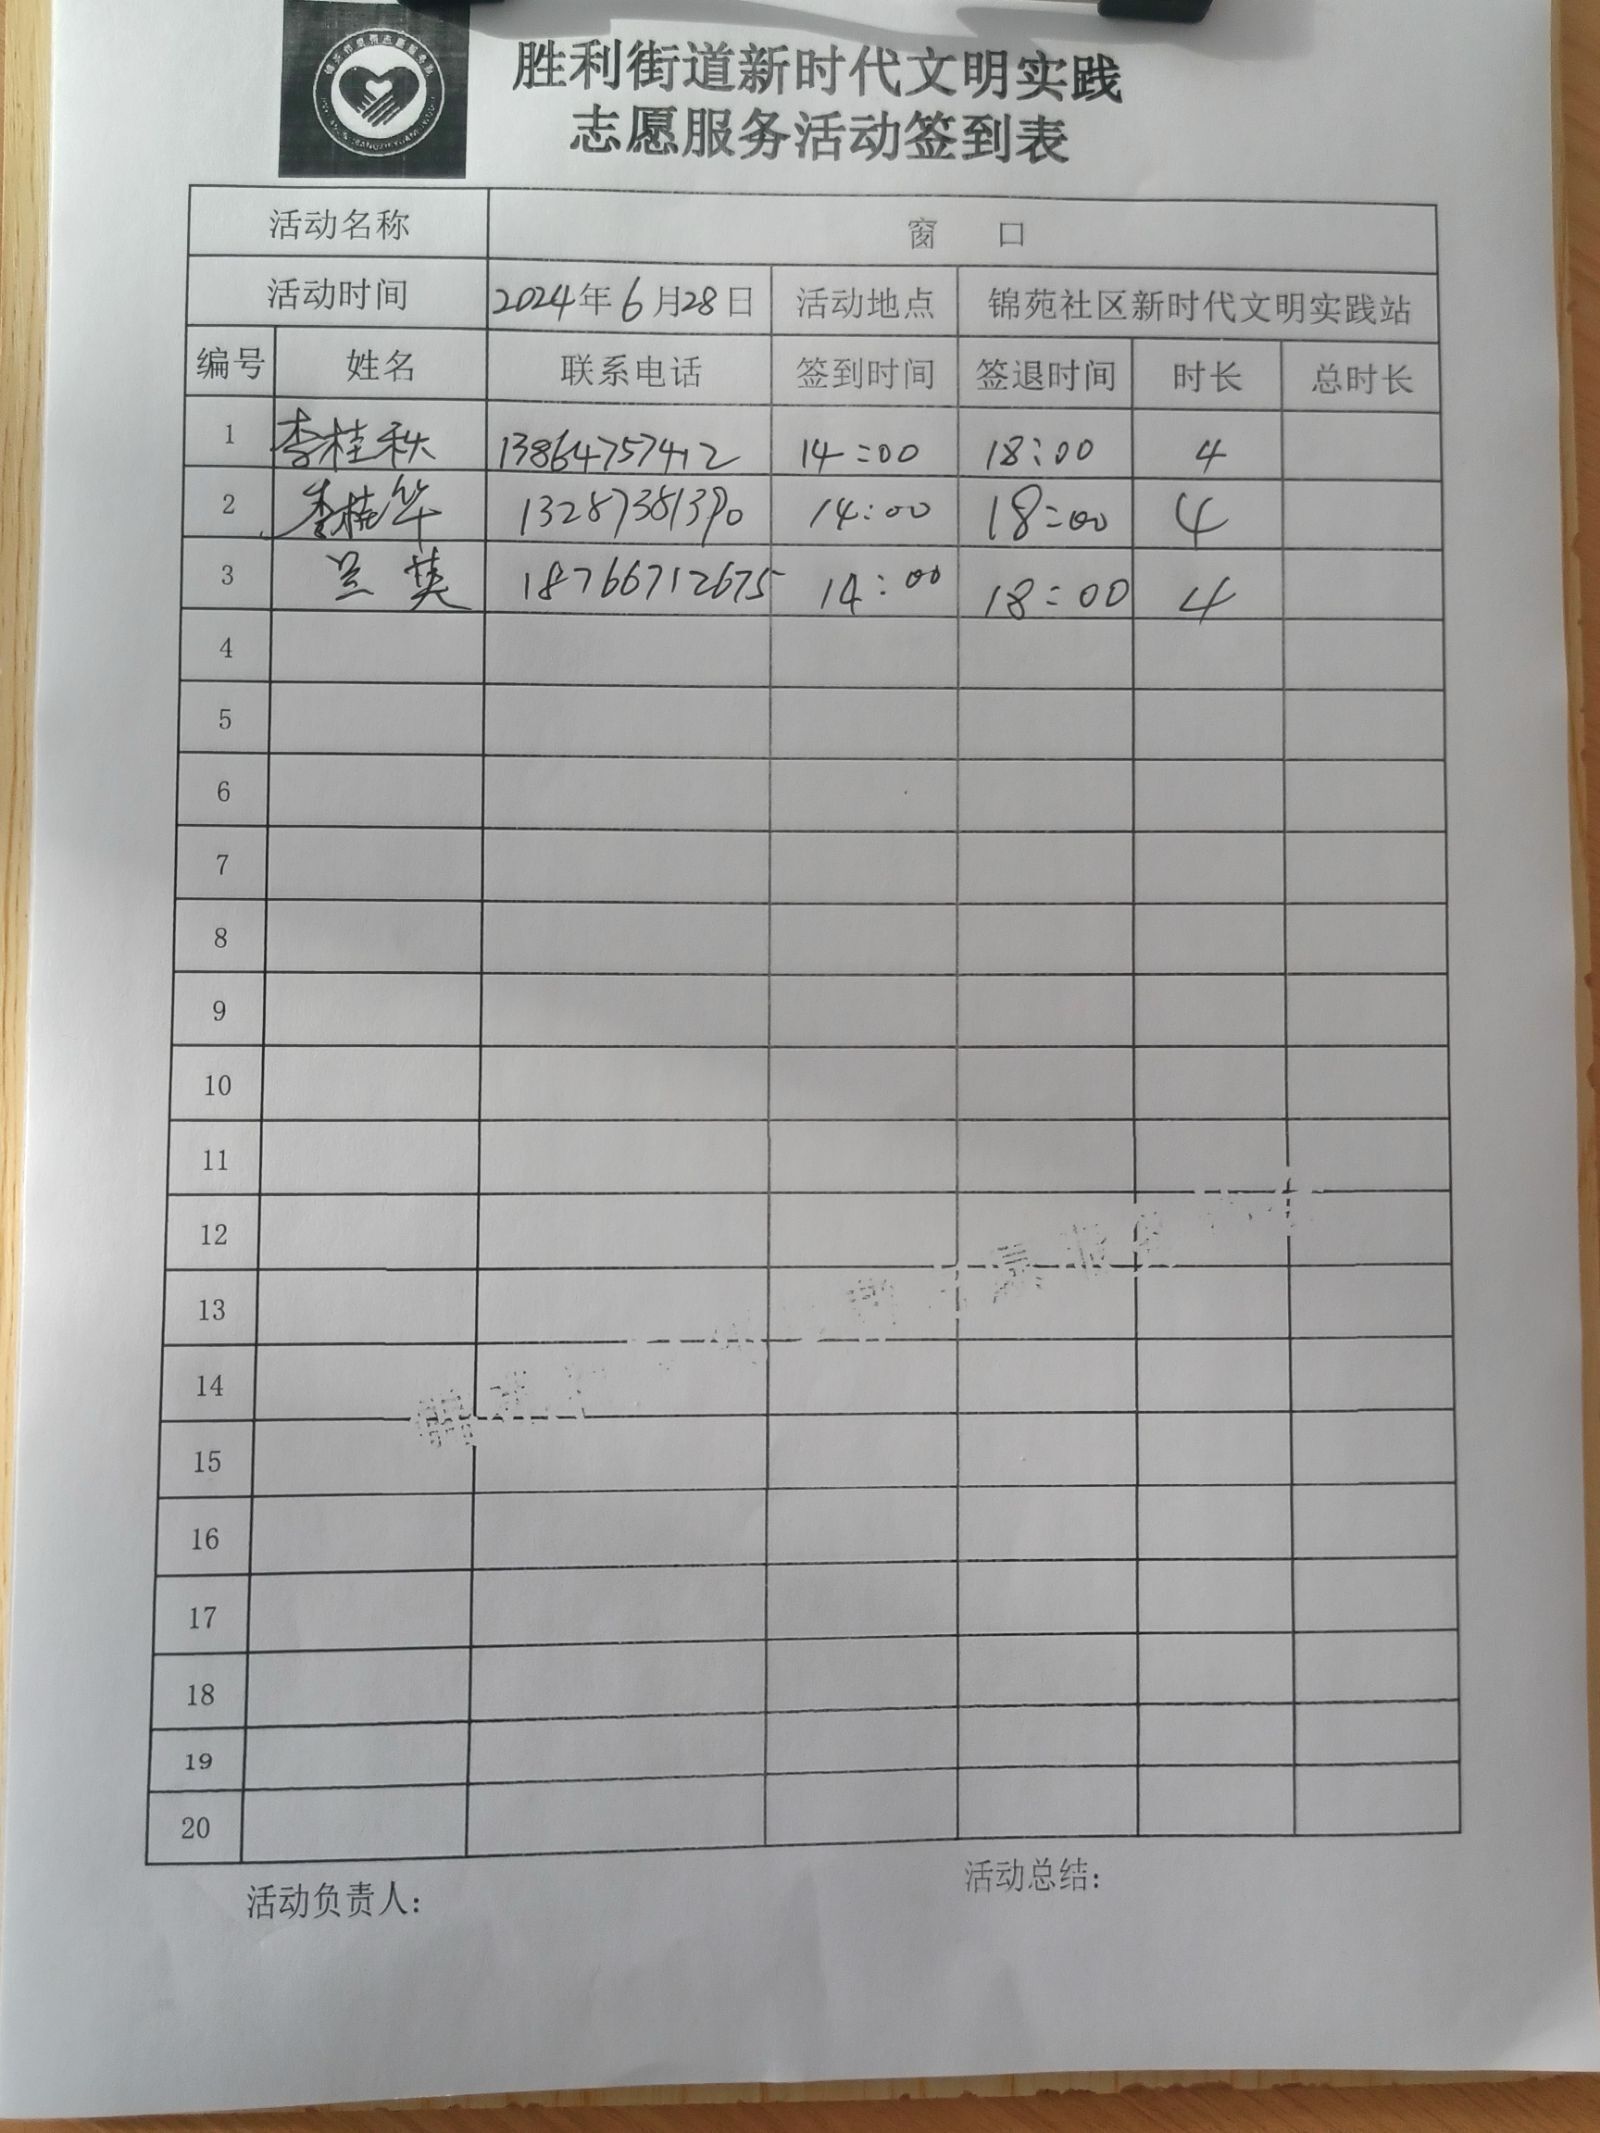 胜利街道新时代文明实践
志愿服务活动签到表
活动名称 窗 口
活动时间 2024年6月28日 活动地点 锦苑社区新时代文明实践站
编号 姓名 联系电话 签到时间 签退时间 时长 总时长
1 李桂秋 13864757412 14:00 18:00 4
2 李桂华 13287381390 14:00 18:00 4
3 兰英 18766712675 14:00 18:00 4
4
5
6
7
8
9
10
11
12
13
14
15
16
17
18
19
20
活动负责人: 活动总结: